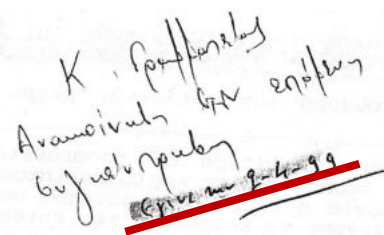 Κ. Γραμματέας
Ανακοίνωση στην επόμενη
συγκέντρωση
Εγινε την 9-4-99